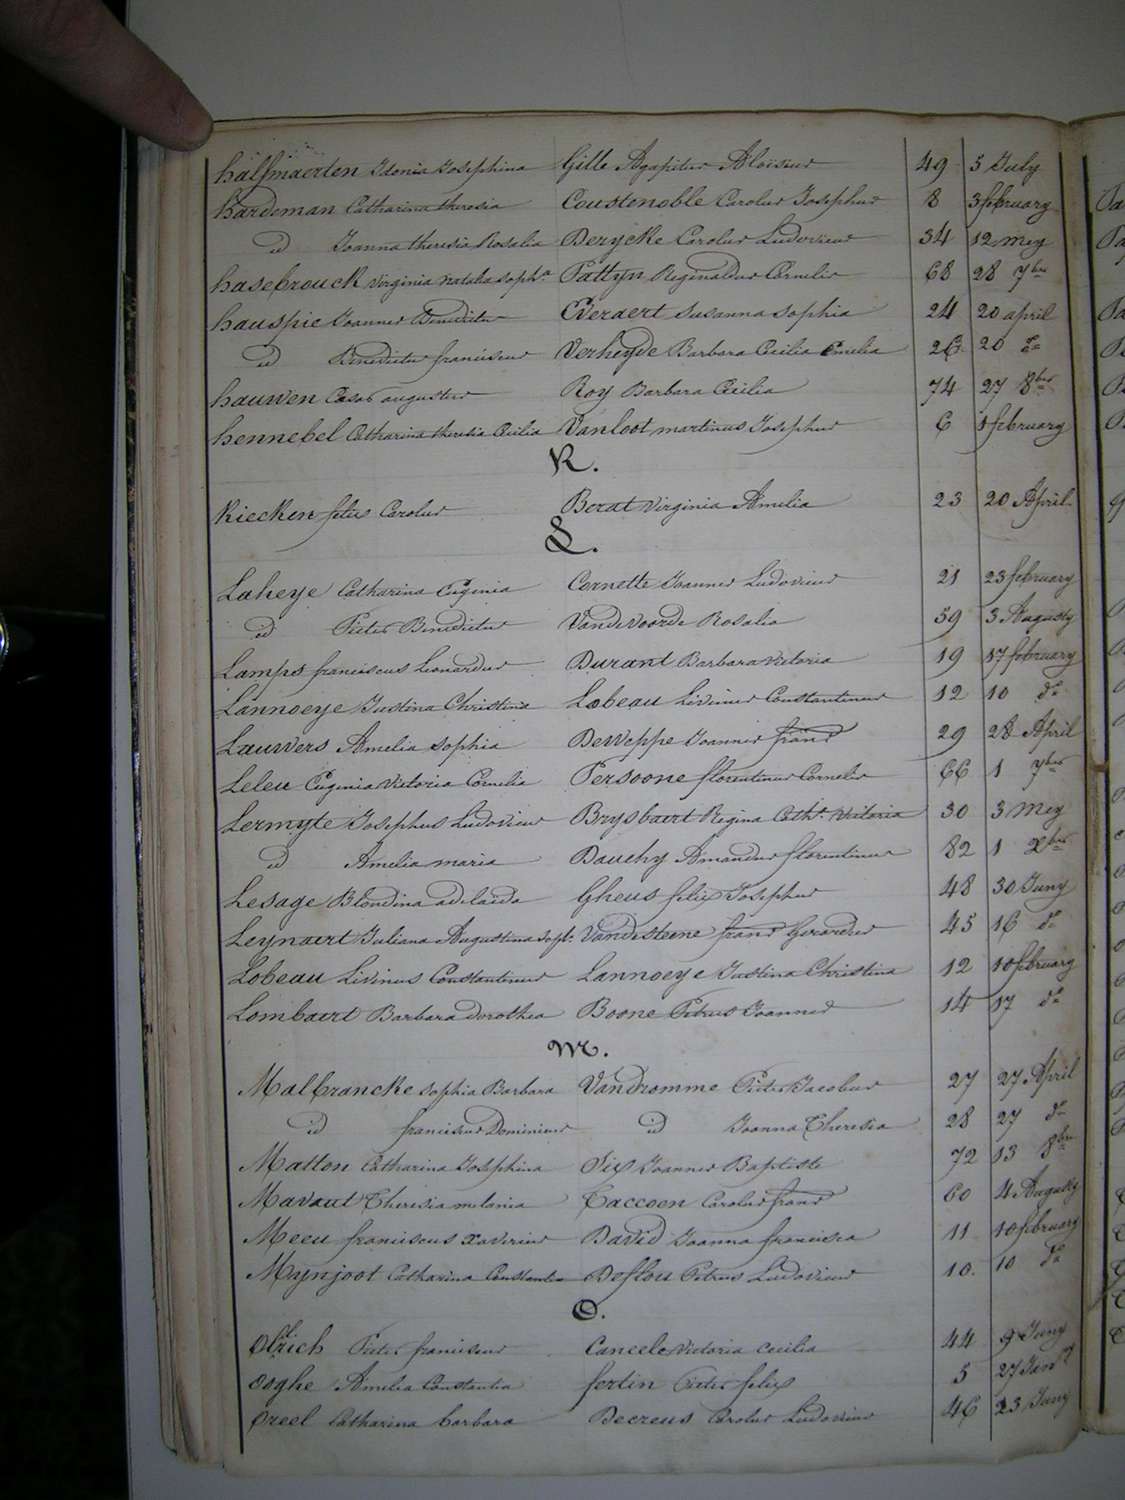 halsmaerten Idonia Josephina Gille Agapitus Aloïsius 49 5 July
hardeman Catharina theresia Coustenoble Carolus Josephus 8 3 february
id Joanna theresia Rosalia Derycke Carolus Ludovicus 34 12 mey
hasebrouck virginia natalia soph.a Pattyn Reginaldus Cornelis 68 28 7bre
hauspie Joannes Benedictus Everaert susanna sophia 24 20 april
id Benedictus franciscus Verheyde Barbara Cecilia Emelia 26 20 do
hauwen Cesar augustus Roy Barbara Cecilia 74 27 8bre
hennebel Catharina theresia Cecilia Vanloot martinus Josephus 6 1 february
K.
Kiecken felix Carolus Berat virginia Amelia 23 20 April
L.
Laheye Catharina Eugenia Cornette Joannes Ludovicus 21 23 february
id Pieter Benedictus Vandevoorde Rosalia 59 3 Augusty
Lamps franciscus Leonardus Durant Barbara victoria 19 17 february
Lannoeye Justina Christina Lobeau Livinus Constantinus 12 10 do
Lauwers Amelia sophia Deweppe Joannes frans 29 28 April
Leleu Eugenia victoria Cornelia Persoone florentinus Cornelis 66 1 7bre
Lermyte Josephus Ludovicus Brysbaert Regina Cath.a victoria 30 3 mey
id Amelia maria Dauchy Amandus florentinus 82 1 Xbre
Lesage Blondina adelaida Gheus felix Josephus 48 30 Juny
Leynaert Juliana Augustina soph. Vandesteene frans Gerardus 45 16 do
Lobeau Livinus Constantinus Lannoeye Justina Christina 12 10 february
Lombaert Barbara dorothea Boone Petrus Joannes 14 17 do
M.
Malbrancke sophia Barbara Vandromme Pieter Jacobus 27 27 April
id franciscus Dominicus id Joanna Theresia 28 27 do
Matton Catharina Josephina Six Joannes Baptiste 72 13 8bre
Mavaut Theresia melania Taccoen Carolus frans 60 4 Augusty
Meeu franciscus xaverius David Joanna francisca 11 10 february
Mynjoot Catharina Constantia Deflou Petrus Ludovicus 10. 10 do
O.
Olrich Pieter franciscus Caneele victoria cecilia 44 9 Juny
Ooghe Amelia Constantia fertin Pieter felix 5 27 Jan
Oreel Catharina barbara Decreus Carolus Ludovicus 46 23 Juny